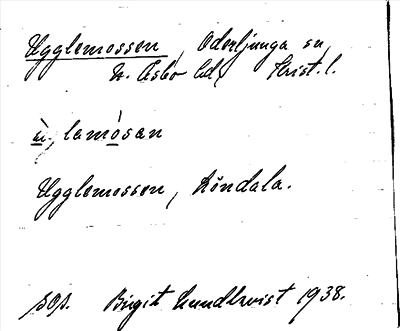 Ugglemossen, Oderljunga sn,
N. Åsbo hd, Krist. l.
ù, lamòsan
Ugglemossen, Röndala.
sop. Birgit Lundkvist 1938.